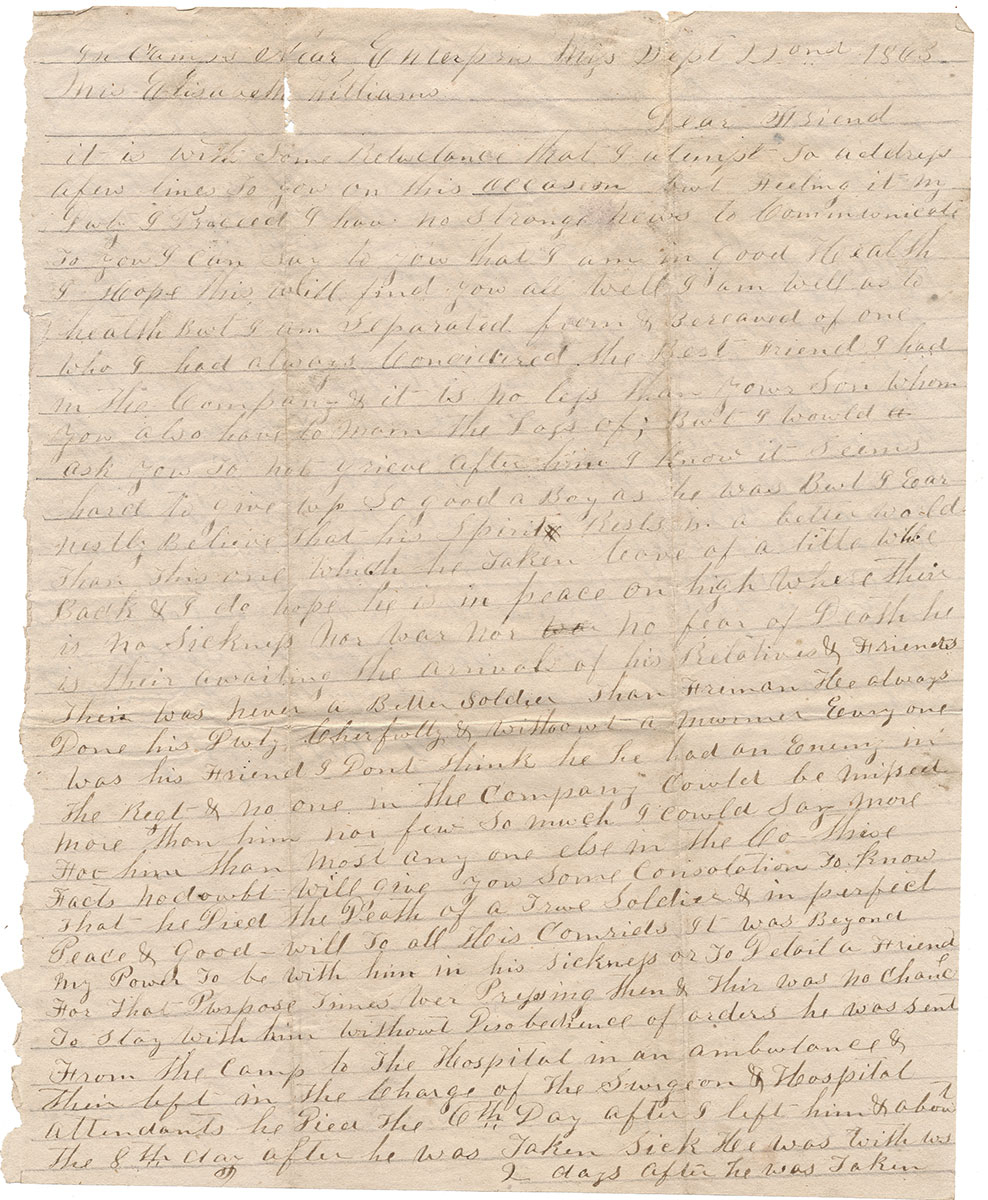 In Camp Near Enterpris Miss Sept 22ond 1863
Mis Elisabeth Williams
Dear Friend
it is with Some Reluctance that I atempt to address
afew lines to you on this occasion but Feeling it my
Duty I Proceed I have no Strange news to Communicate
To you I can Say to you that I am in Good Health
I Hope this will find you all well I am well as to
health But I am Separated from & Bereaved of one
who I had always Concidired the Best Friend I had
in the Company & it is no less than your Son whom
you also have to morn the Loss of; But I would
ask you to not grieve after him I know it Seems
hard to Give up So good a Boy as he was But I Ear
nestly Believe that his Spirit Rests in a better world
than this one which he Taken leave of a little while
Back & I do hope he is in peace on high whare thier
is no Sickness nor war nor no fear of Death he
is their awaiting the arrival of his Relatives & Friends
Their was never a Better Soldier than Freman He always
Done his Duty Cherfully & without a murmer Every one
was his Friend I Dont think he he had an Enemy in
the Regt & no one in the Company Could be missed
more than him nor few So much I could Say more
For him than most any one else in the Co these
Facts no doubt will give you Some Consolation To know
that he Died the Death of a True Soldier & in perfect
Peace & Good-will To all His Comrids It was Beyond
my Power To be with him in his Sickness or To Detail a Friend
For That Purpose Times wer Pressing then & Thir was no Chance
To Stay with him without Disobedience of orders he was Sent
From the Camp to The Hospital in an ambulance &
their left in The Charge of The Surgeon & Hospital
attendants he Died The 6th Day after I left him & about
the 8th day after he was Taken Sick He was with us
2 days after he was Taken